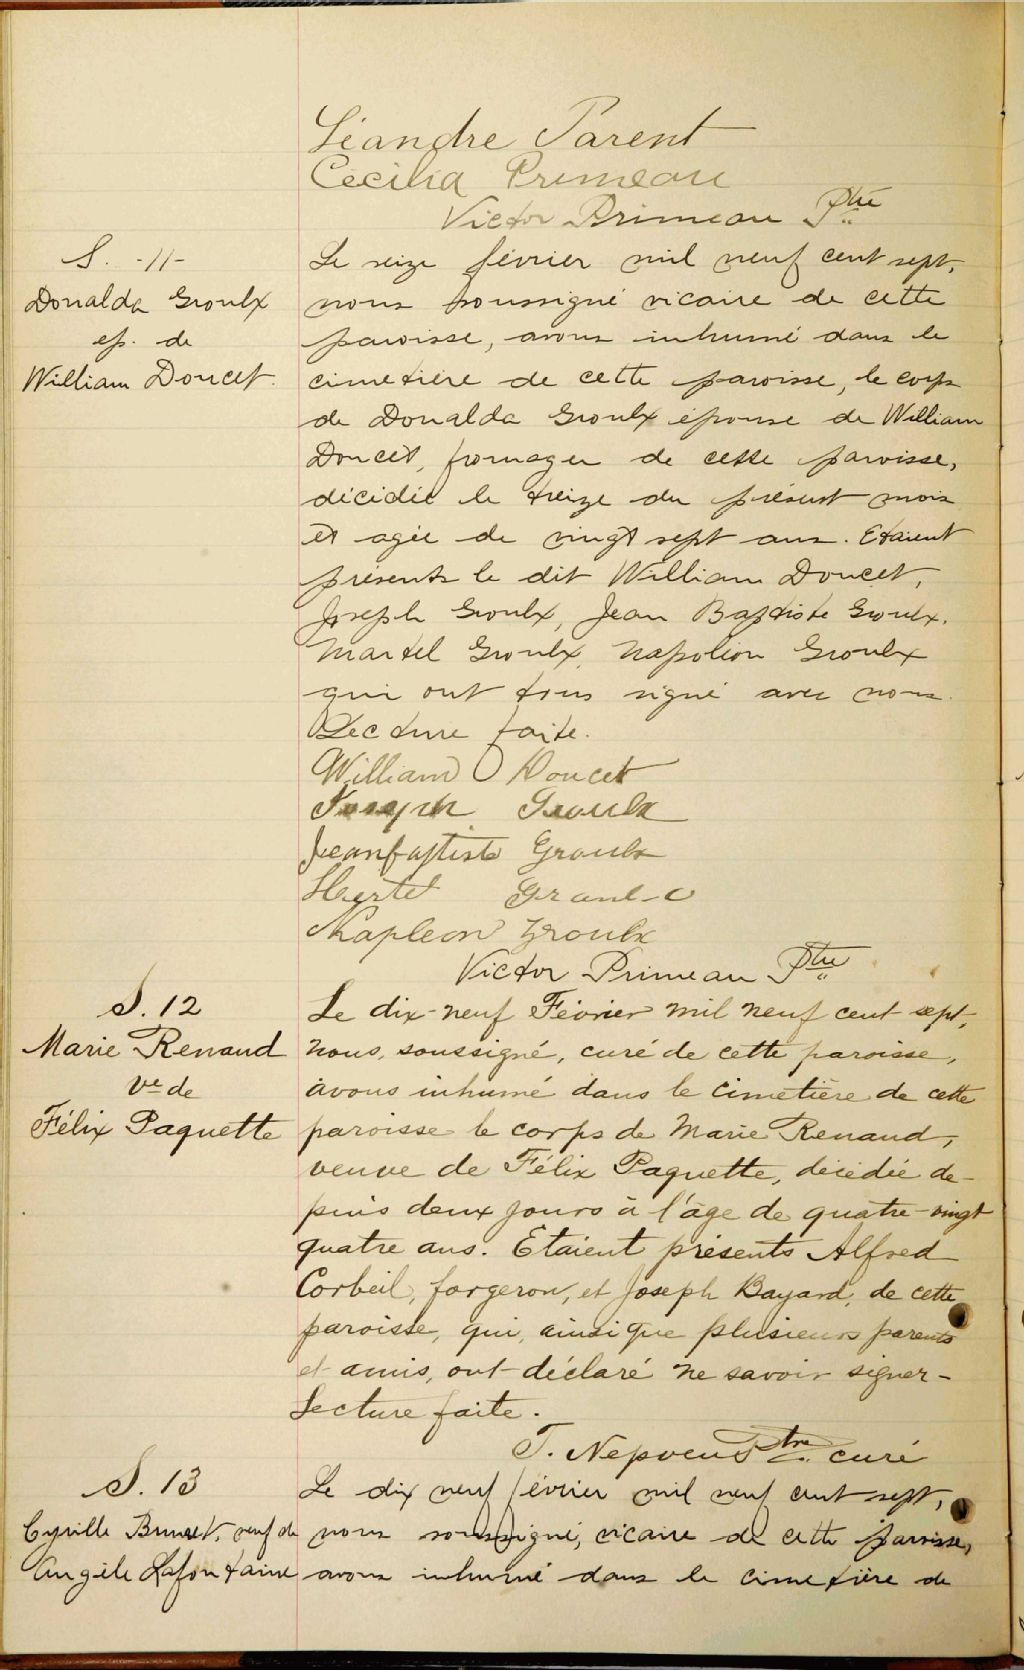 Léandre Parent
Cécilia Primeau
Victor Primeau Ptre
S. -11-
Donalda Groulx
ep. de
William Doucet.
Le seize février mil neuf cent sept,
nous soussigné vicaire de cette
paroisse, avons inhumé dans le
cimetière de cette paroisse, le corps
de Donalda Groulx épouse de William
Doucet, fromager de cette paroisse,
décédée le treize du présent mois
et agée de vingt sept ans. Etaient
présents le dit William Doucet,
Joseph Groulx, Jean Baptiste Groulx,
Martel Groulx, Napoléon Groulx
qui ont tous signé avec nous.
Lecture faite.
William Doucet
Joseph Groulx
Jeanbaptiste Groulx
Hertel Groulx
Napleon Groulx
Victor Primeau Ptre
S. 12
Marie Renaud
ve de
Félix Paquette
Le dix-neuf Février mil neuf cent sept,
nous, soussigné, curé de cette paroisse,
avons inhumé dans le cimetière de cette
paroisse le corps de Marie Renaud,
veuve de Félix Paquette, décédée de-
puis deux jours à l'âge de quatre-vingt
quatre ans. Etaient présents Alfred
Corbeil, forgeron, et Joseph Bayard, de cette
paroisse, qui, ainsi que plusieurs parents
et amis, ont déclaré ne savoir signer-
Lecture faite.
T. Nepveu Ptre curé
S. 13
Cyrille Brunet, veuf de
Angèle Lafontaine
Le dix neuf février mil neuf cent sept,
nous soussigné, vicaire de cette paroisse,
avons inhumé dans le cimetière de